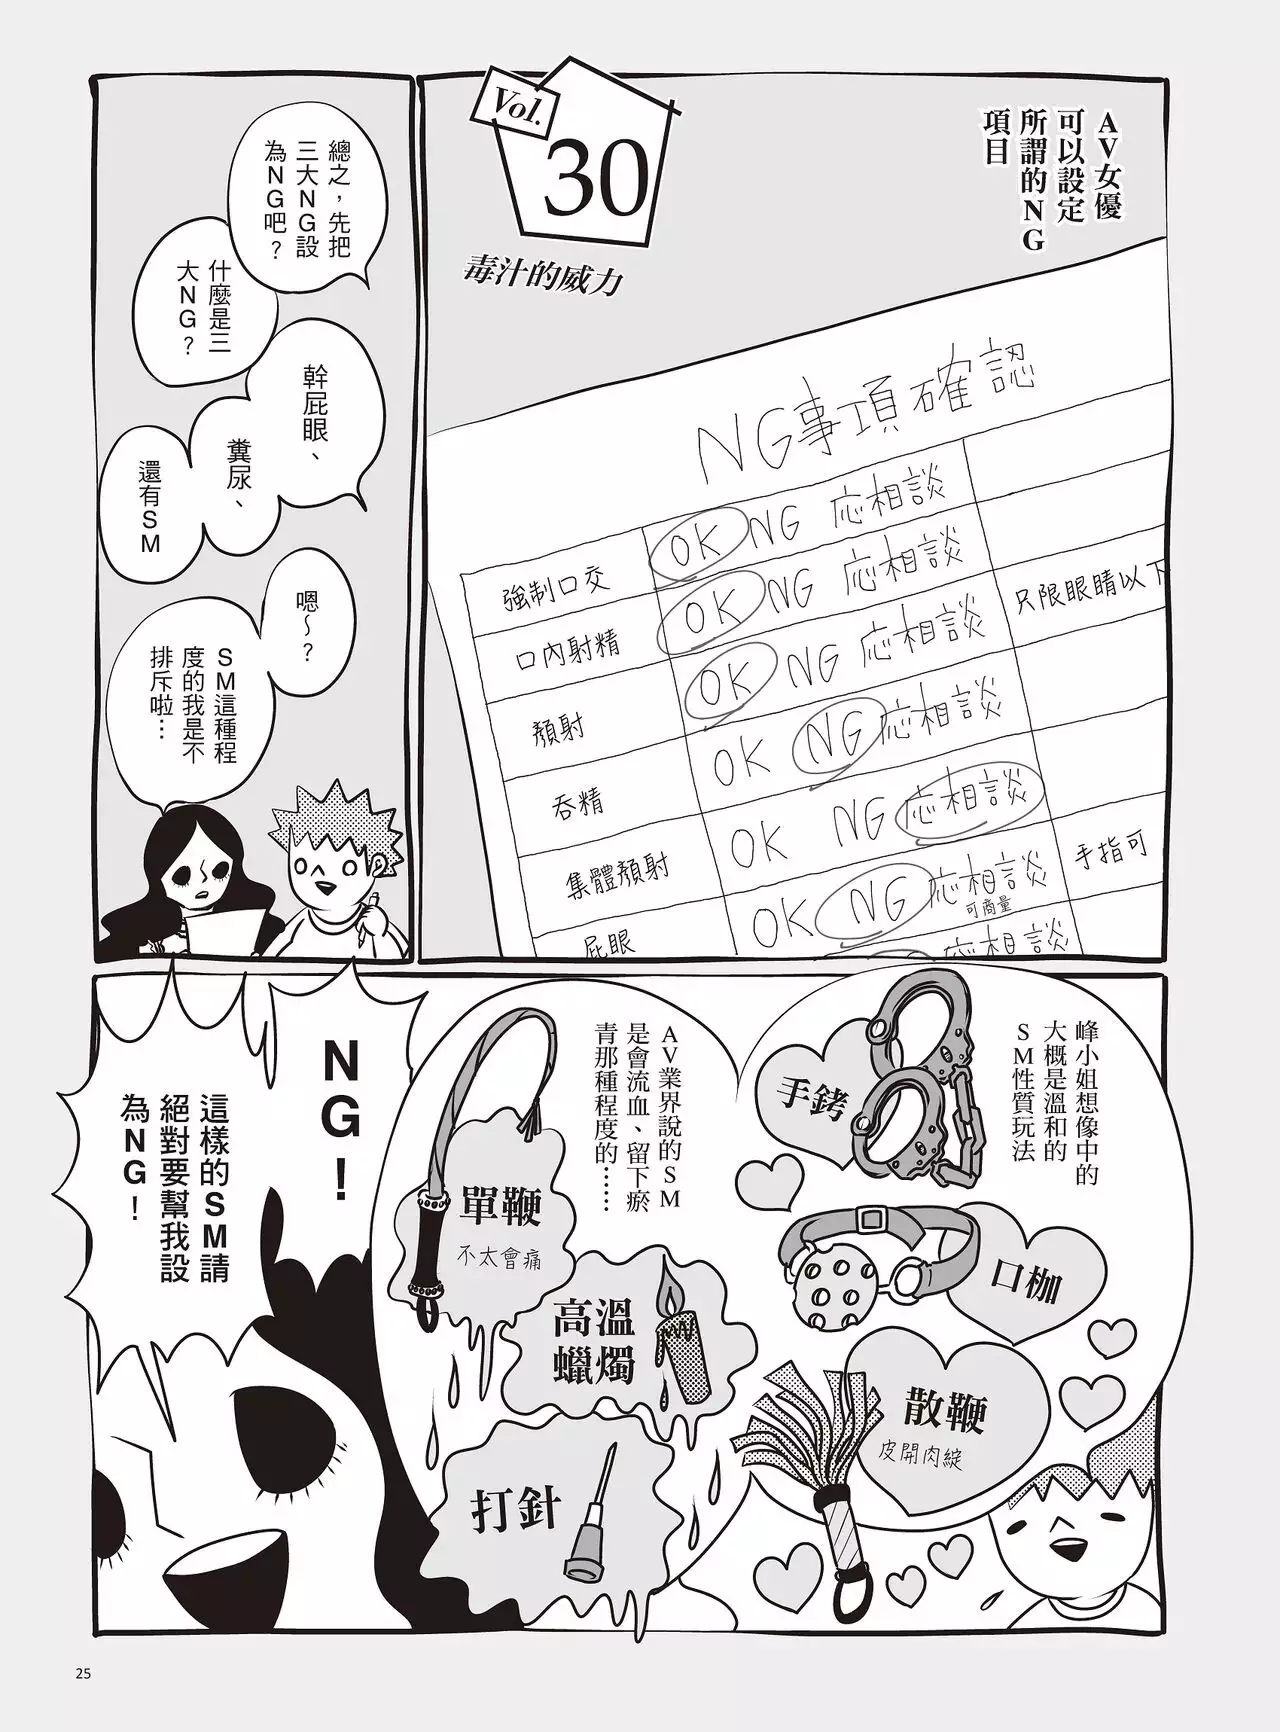 AV女優
可以設定
所謂的NG
項目
Vol.
30
毒汁的威力
NG事項確認
強制口交 OK NG 応相談
口內射精 OK NG 応相談
顏射 OK NG 応相談 只限眼睛以下
吞精 OK NG 応相談
集體顏射 OK NG 応相談
屁眼 OK NG 応相談 手指可
可商量
応相談
總之，先把
三大NG設
為NG吧？
什麼是三
大NG？
幹屁眼、
糞尿、
還有SM
嗯～？
SM這種程
度的我是不
排斥啦…
峰小姐想像中的
大概是溫和的
SM性質玩法
手銬
口枷
散鞭
皮開肉綻
AV業界說的SM
是會流血、留下瘀
青那種程度的……
單鞭
不太會痛
高溫
蠟燭
打針
NG！
這樣的SM請
絕對要幫我設
為NG！
25